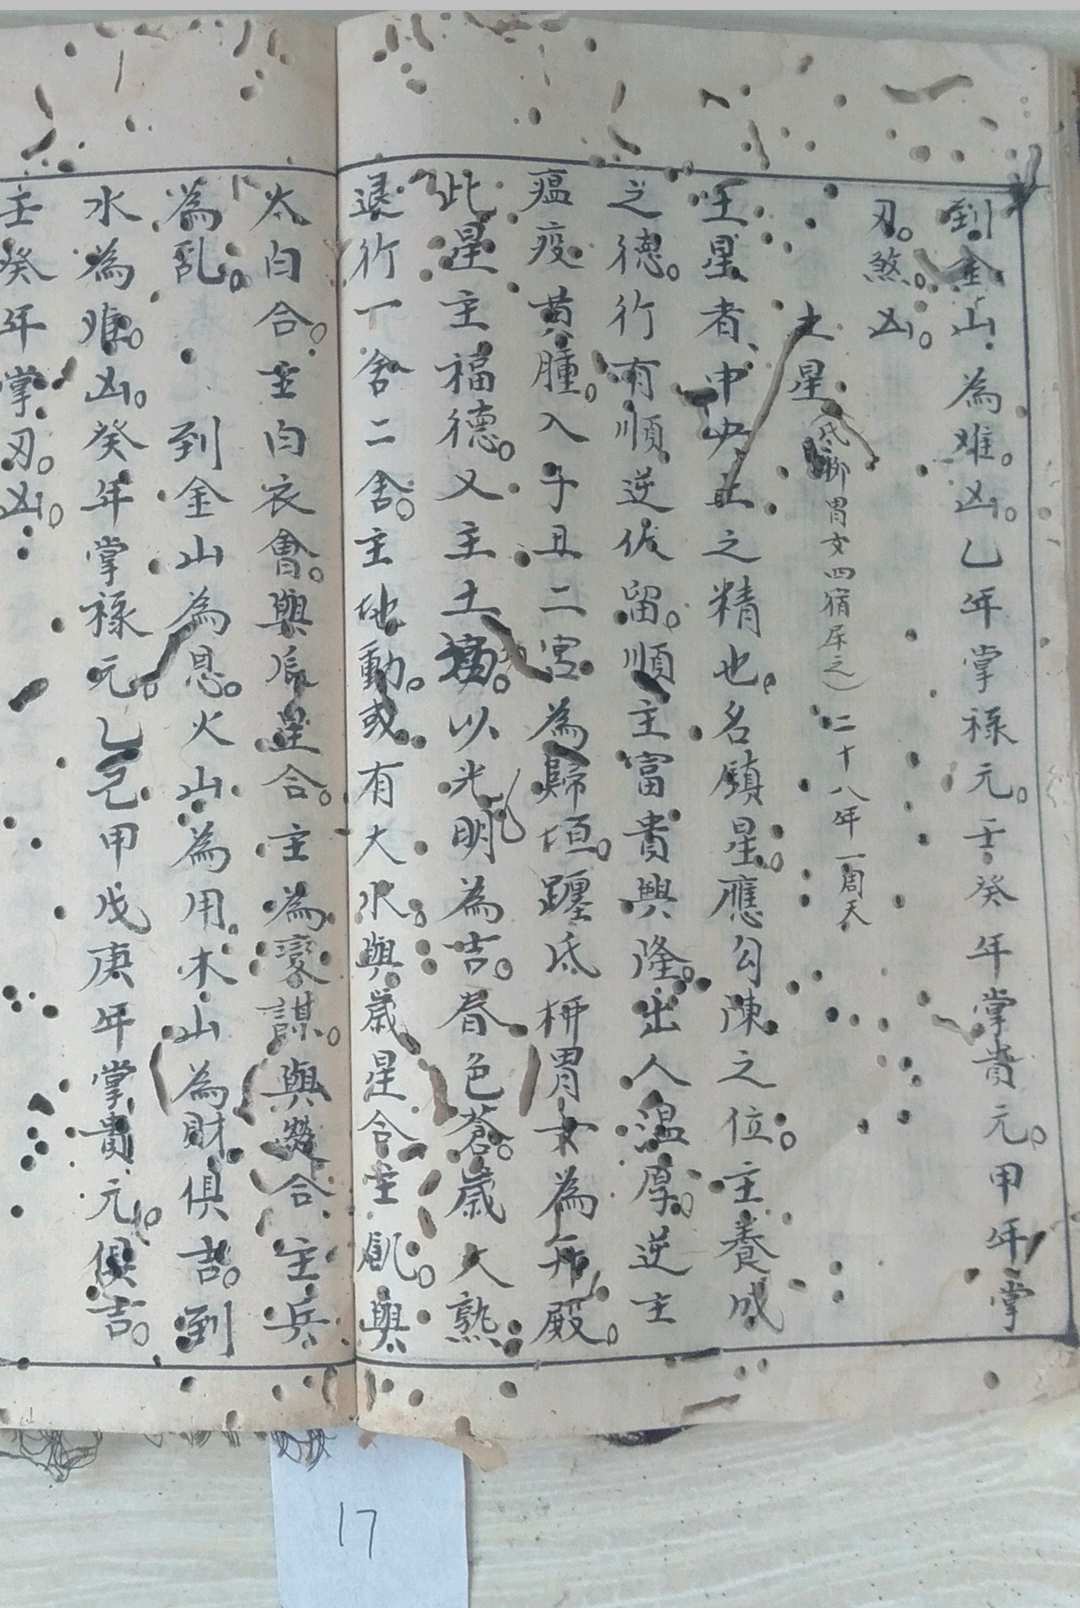 到金山為难。凶。乙年掌禄元。壬癸年掌貴元。甲年掌
刃。煞。凶。
土星 氐 胃女四宿 之 二十八年一周天
土星者中央土之精也。名鎮星。應勾陳之位。主養成
之德。行有順逆伏留。順主富貴興隆。出人温厚。逆主
瘟疫黄腫。入子丑二宮為歸垣。躔氐 胃女為升殿。
此星主福德。又主土 。以光明為吉。春色蒼。歲大熟
退行一舍二舍。主地動。或有大水。與歲星合主飢。與
太白合。主白衣會。與辰星合。主為变謀。與熒合主兵
為乱。 到金山為恩。火山為用。木山為財。俱吉。到
水為难。凶。癸年掌禄元。乙己甲戊庚年掌貴元。俱吉。
壬癸年掌刃。凶。
17